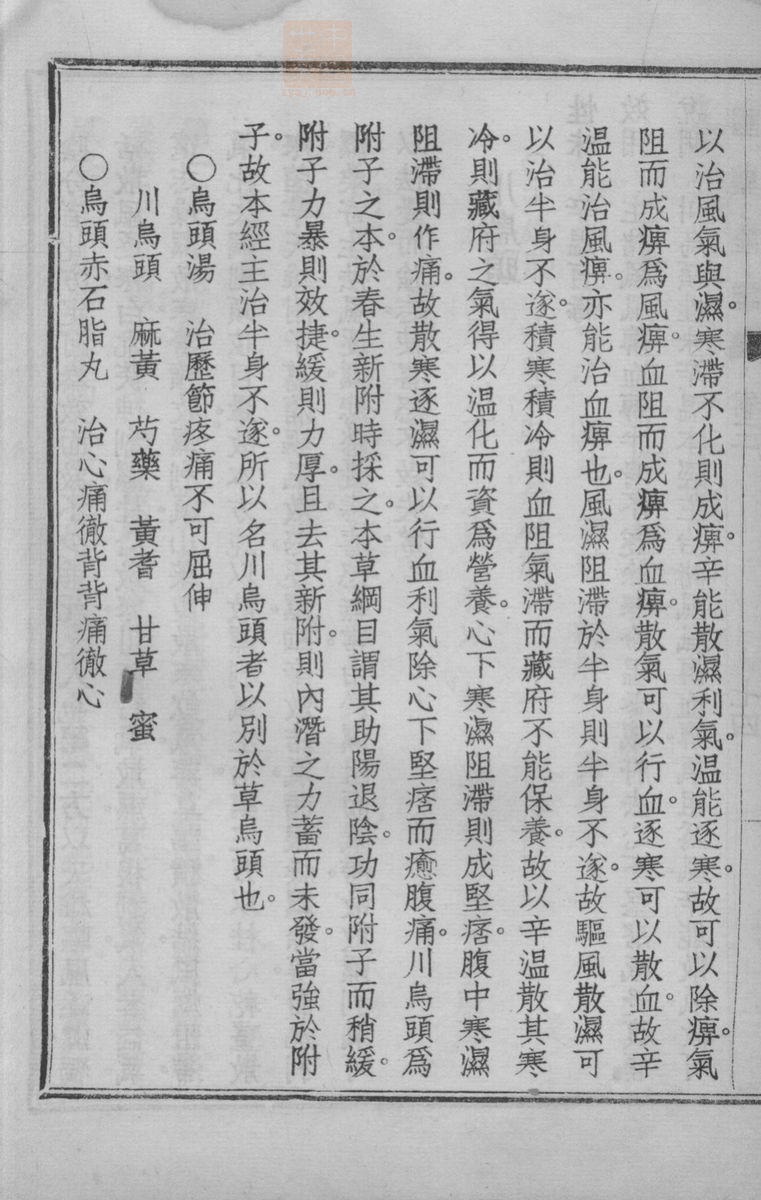 以治風氣與濕。寒滯不化則成痹。辛能散濕利氣。温能逐寒。故可以除痹。氣
阻而成痹爲風痹。血阻而成痹爲血痹。散氣可以行血。逐寒可以散血。故辛
温能治風痹。亦能治血痹也。風濕阻滯於半身則半身不遂。故驅風散濕可
以治半身不遂。積寒積冷則血阻氣滯而藏府不能保養。故以辛温散其寒
冷。則藏府之氣得以温化而資爲營養。心下寒濕阻滯則成堅痞。腹中寒濕
阻滯則作痛。故散寒逐濕可以行血利氣除心下堅痞而癒腹痛。川烏頭爲
附子之本。於春生新附時採之。本草綱目謂其助陽退陰。功同附子而稍緩。
附子力暴則效捷。緩則力厚。且去其新附。則內潛之力蓄而未發。當強於附
子。故本經主治半身不遂。所以名川烏頭者以別於草烏頭也。
○烏頭湯　治歷節疼痛不可屈伸
川烏頭　麻黃　芍藥　黃耆　甘草　蜜
○烏頭赤石脂丸　治心痛徹背背痛徹心